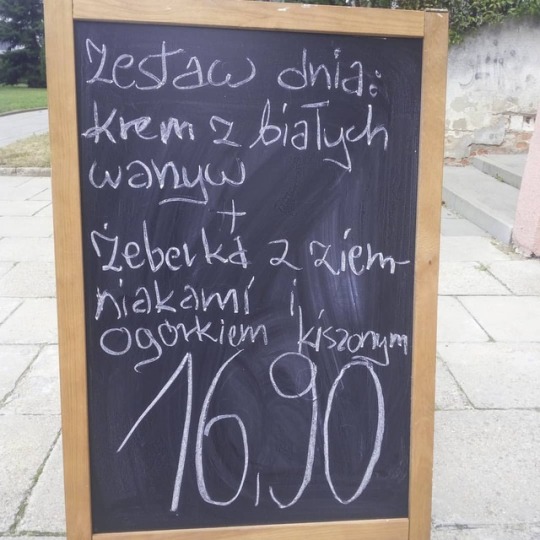 Zestaw dnia:
krem z białych
wanyw
+
Żeberka z ziem-
niakami i
ogórkiem kiszonym
16,90